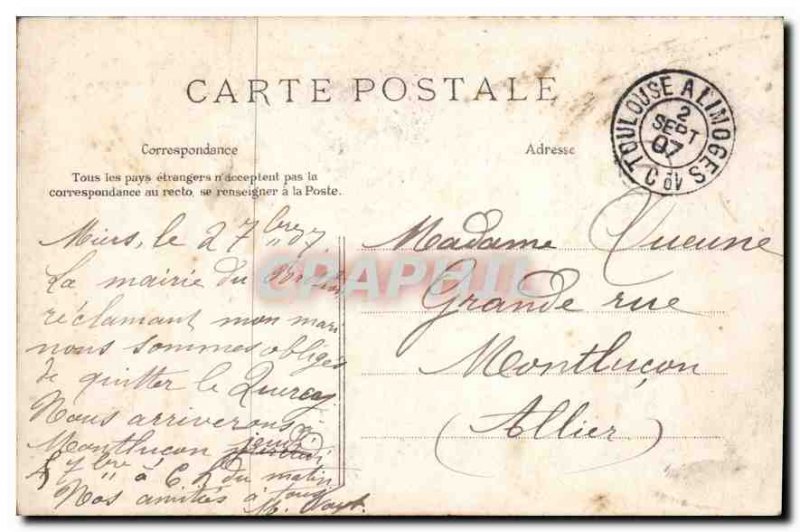 CARTE POSTALE
TOULOUSE A LIMOGES
2
SEPT
07
Correspondance
Adresse
Tous les pays étrangers n'acceptent pas la
correspondance au recto, se renseigner à la Poste.
Miers, le 2 7bre 07
La mairie du
réclamant mon mari
nous sommes obligés
de quitter le Quercy
Nous arriverons à
Montluçon jeudi
5 7bre à 6 h du matin
Nos amitiés à tous
M.
Madame Queune
Grande rue
Montluçon
(Allier)
CPAPHIL